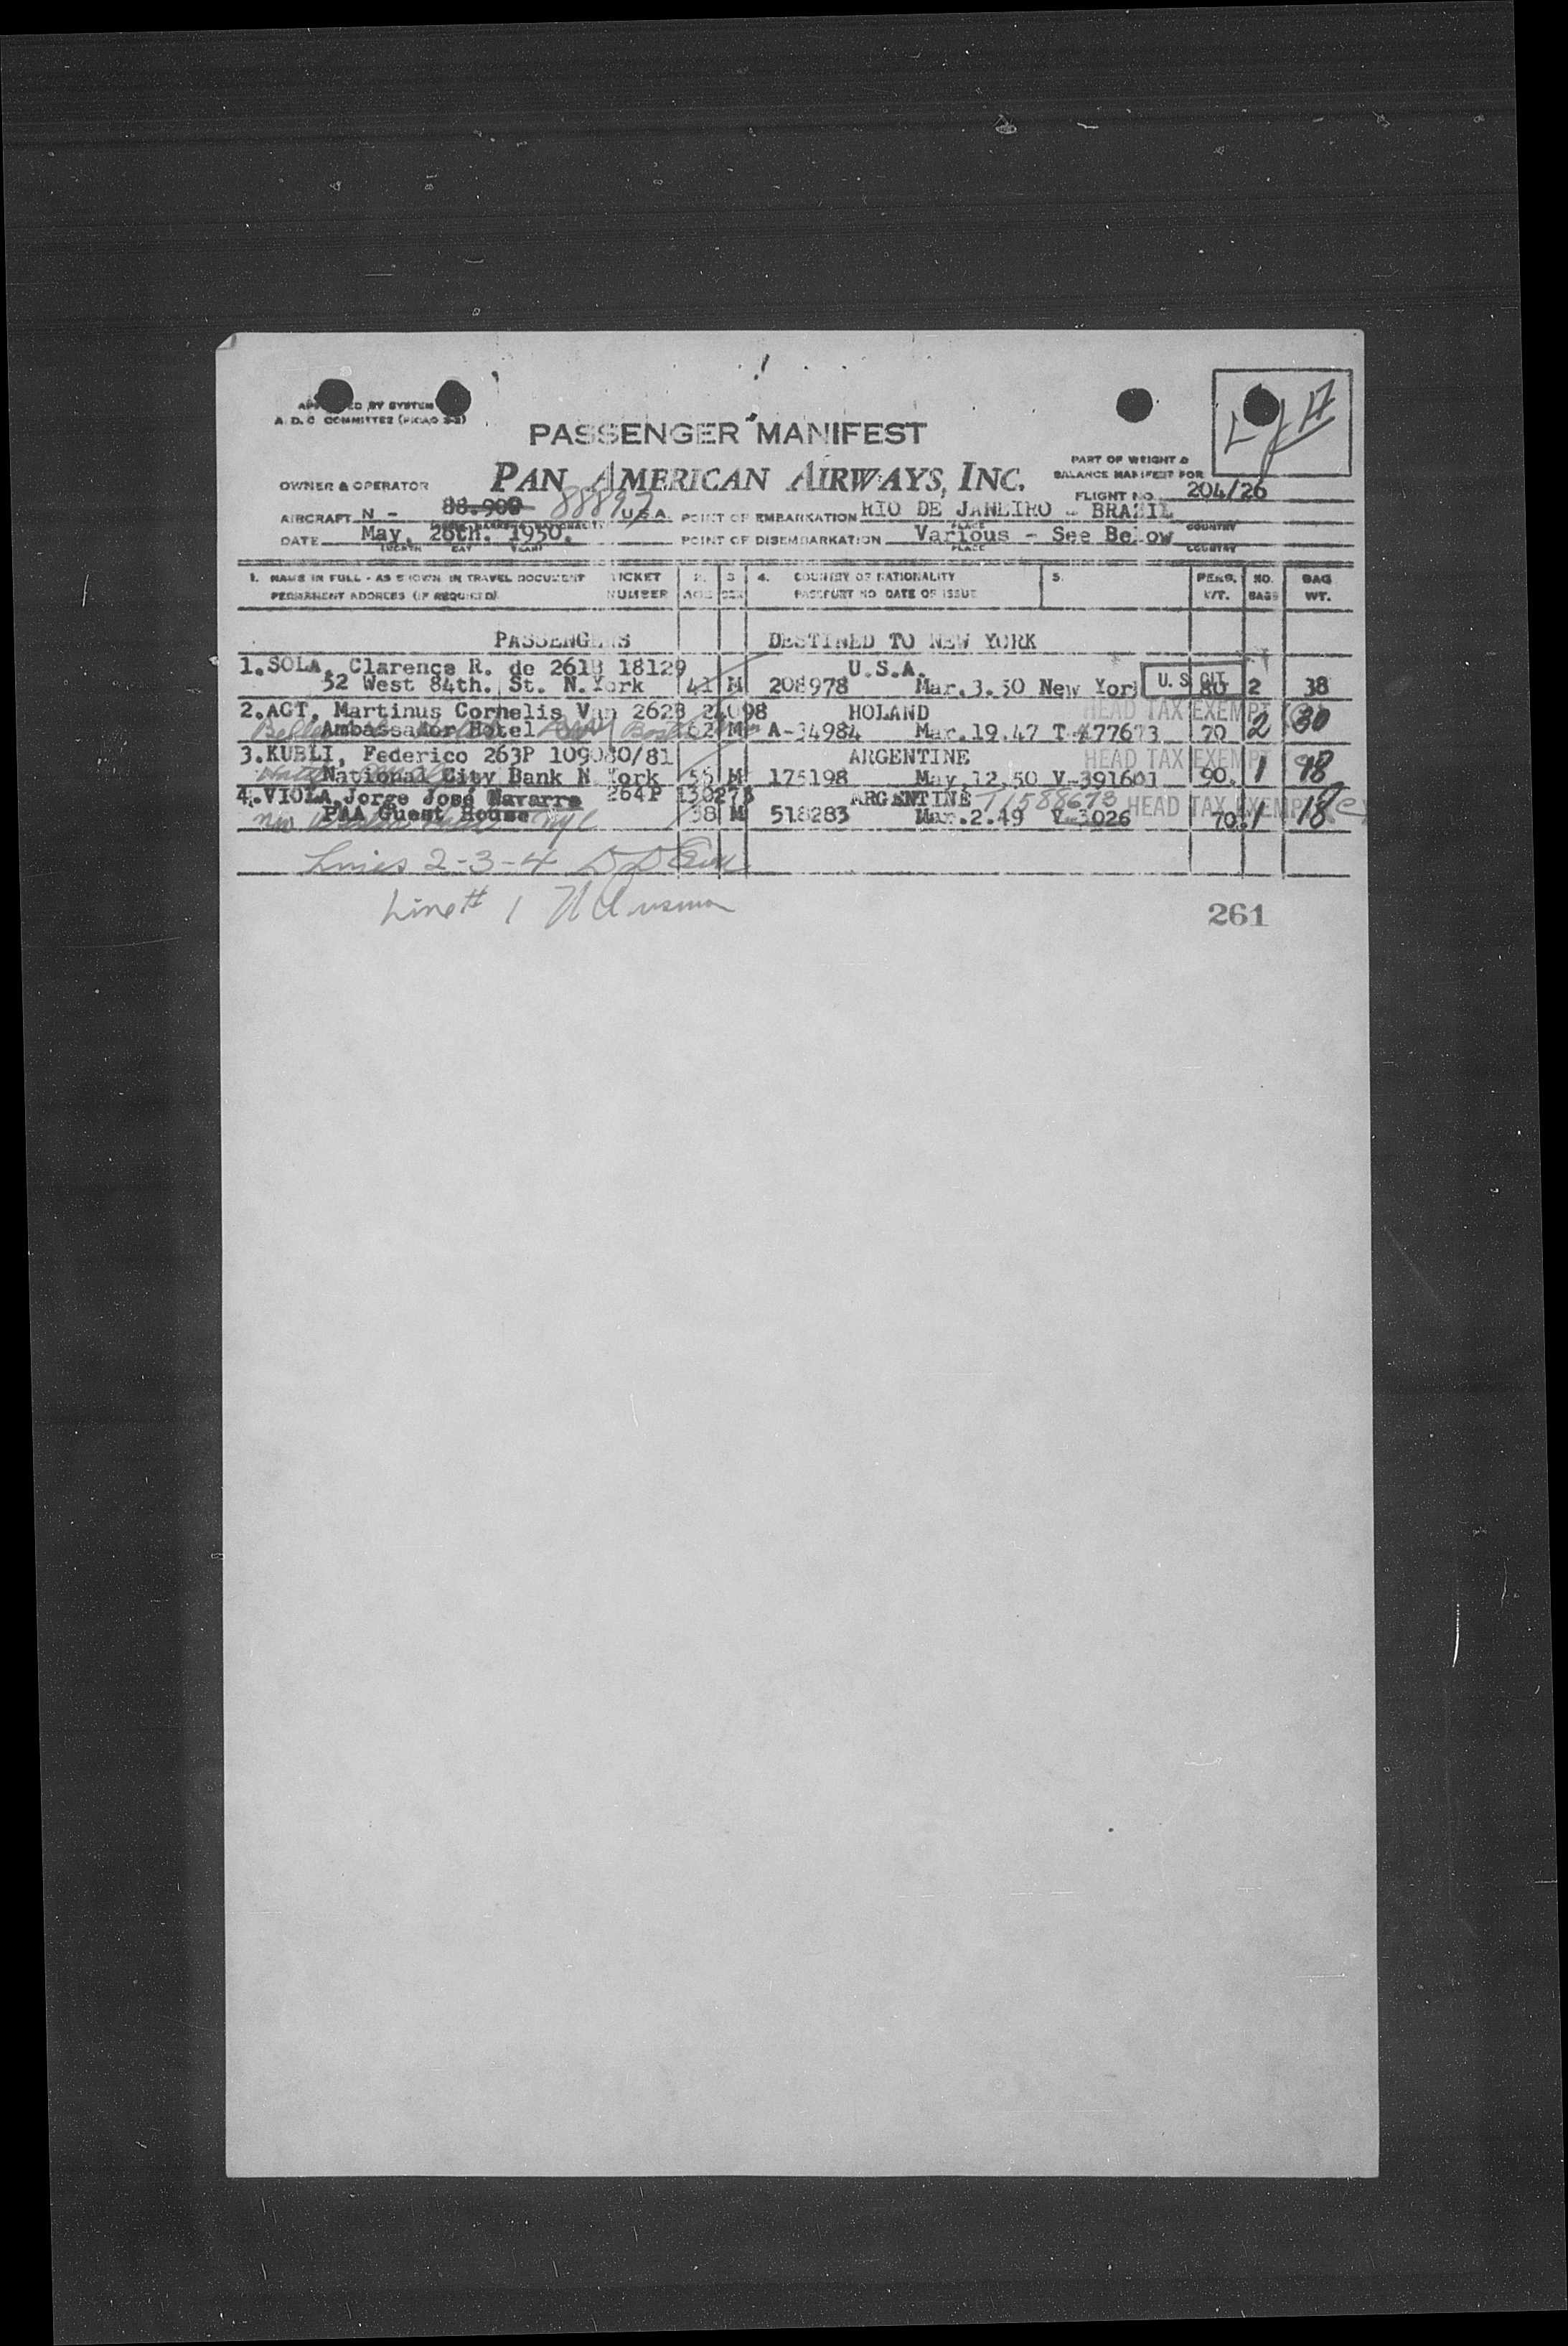 APPROVED BY SYSTEM
A. D. C. COMMITTEE (PICAO 2-2)
PASSENGER MANIFEST
PART OF WEIGHT &
BALANCE MANIFEST FOR
OWNER & OPERATOR PAN AMERICAN AIRWAYS, INC.
FLIGHT NO. 204/26
AIRCRAFT N - 88.900 88897 U.S.A. POINT OF EMBARKATION RIO DE JANEIRO - BRAZIL
PLACE COUNTRY
DATE May, 26th. 1950. POINT OF DISEMBARKATION Various - See Below
MONTH DAY YEAR PLACE COUNTRY
1. NAME IN FULL - AS SHOWN IN TRAVEL DOCUMENT TICKET 2. 3 4. COUNTRY OF NATIONALITY 5. PERS. NO. BAG
PERMANENT ADDRESS (IF REQUIRED) NUMBER AGE SEX PASSPORT NO DATE OF ISSUE WT. BAGS WT.
PASSENGERS DESTINED TO NEW YORK
1.SOLA, Clarence R. de 261B 18129 U.S.A.
52 West 84th. St. N.York 41 M 208978 Mar.3.50 New York U. S. CIT. 80 2 38
2.AGT, Martinus Cornelis Van 262B 24098 HOLAND HEAD TAX EXEMPT
Ambassador Hotel 62 M A-34984 Mar.19.47 77673 70 2 30
3.KUBLI, Federico 263P 109080/81 ARGENTINE HEAD TAX EXEMPT
National City Bank N York 56 M 175198 May,12,50 V-391601 90. 1 18
4.VIOLA,Jorge José Navarre 264P 130275 ARGENTINE T1588673 HEAD TAX EXEMPT
PAA Guest House NYC 38 M 518283 Mar.2.49 V-3026 70. 1 18
Lines 2-3-4
Line # 1
261